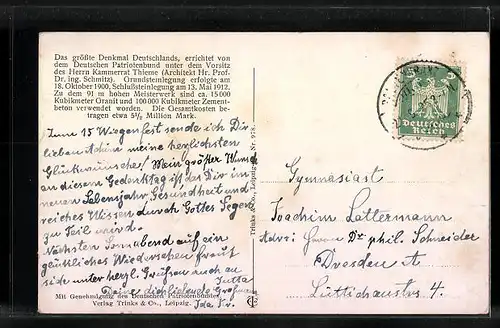 Das größte Denkmal Deutschlands, errichtet von
dem Deutschen Patriotenbund unter dem Vorsitz
des Herrn Kammerrat Thieme (Architekt Hr. Prof.
Dr. ing. Schmitz). Grundsteinlegung erfolgte am
18. Oktober 1900, Schlußsteinlegung am 13. Mai 1912.
Zu dem 91 m hohen Meisterwerk sind ca. 15 000
Kubikmeter Granit und 100 000 Kubikmeter Zement-
beton verwendet worden. Die Gesamtkosten be-
tragen etwa 5½ Million Mark.
Zum 15 Wiegenfest sende ich Dir
lieber Achim meine herzlichsten
Glückwünsche! Mein größter Wunsch
an diesem Gedenktag ist das Dir im
neuen Lebensjahr Gesundheit und
reiches Wissen durch Gottes Segen
zu Teil wird.
Nächsten Sonnabend auf ein
glückliches Wiedersehen freut
sich unter herzl. Grüßen auch an
Jutta
Deine dich liebende Großmama
Ida
Mit Genehmigung des Deutschen Patriotenbundes.
Verlag Trinks & Co., Leipzig.
Trinks & Co., Leipzig. Nr. 978.
5 5
Deutsches
Reich
Gymnasiast
Joachim Lattermann
Adr: Herrn Dr phil. Schneider
Dresden A
Lüttichaustr. 4.